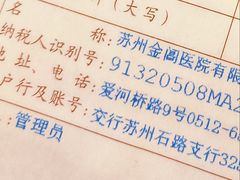 名
（大写）
称：苏州金阊医院有限
纳税人识别号：91320508MA2
地址、电话：爱河桥路9号0512-6
户行及账号：交行苏州石路支行325
：管理员